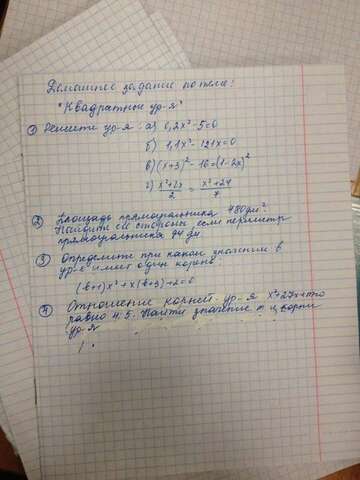 Домашнее задание по теме:
"Квадратные ур-я"
① Решите ур-я: а) 0,2x²-5=0
б) 1,1x²-121x=0
в) (x+3)²-16=(1-2x)²
г) x²+2x/2 = x²+24/7
② Площадь прямоугольника 480дм².
Найдите его стороны, если периметр
прямоугольника 94 дм
③ Определите при каком значении в
ур-е имеет один корень
(в+1)x²+x(в+3)+2=0
④ Отношение корней ур-я x²+27x+m=0
равно 4:5. Найти значение m и корни
ур-я